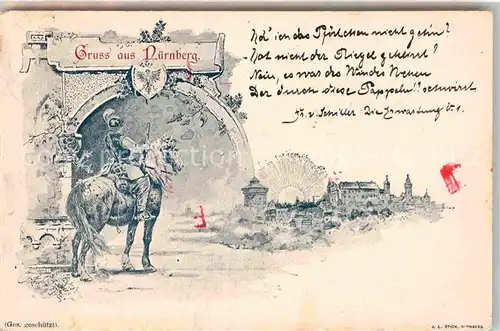 Gruss aus Nürnberg.
Hör' ich das Pförtchen nicht gehn?
Hat nicht der Riegel geklirrt?
Nein, es war des Windes Wehen
Der durch diese Pappeln schwirrt
Fr. v. Schiller: Die Erwartung V. 1.
(Ges. geschützt).
J. L. STICH, NÜRNBERG.